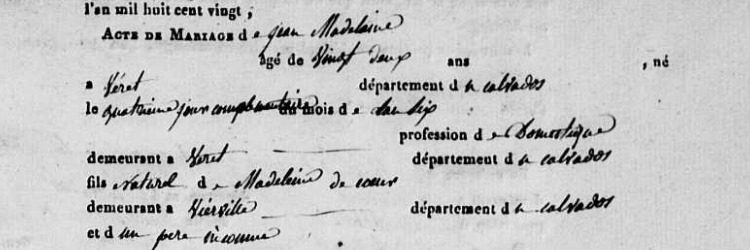 l'an mil huit cent vingt ;
ACTE DE MARIAGE de jean Madelaine
âgé de Vingt deux ans , né
a Véret département du calvados
le quatrieme jour complementaire du mois de L'an six
profession de Domestique
demeurant a Veret département du calvados
fils Naturel de Madeleine de coeur
demeurant a Vierville département du calvados
et d'un pere inconnue